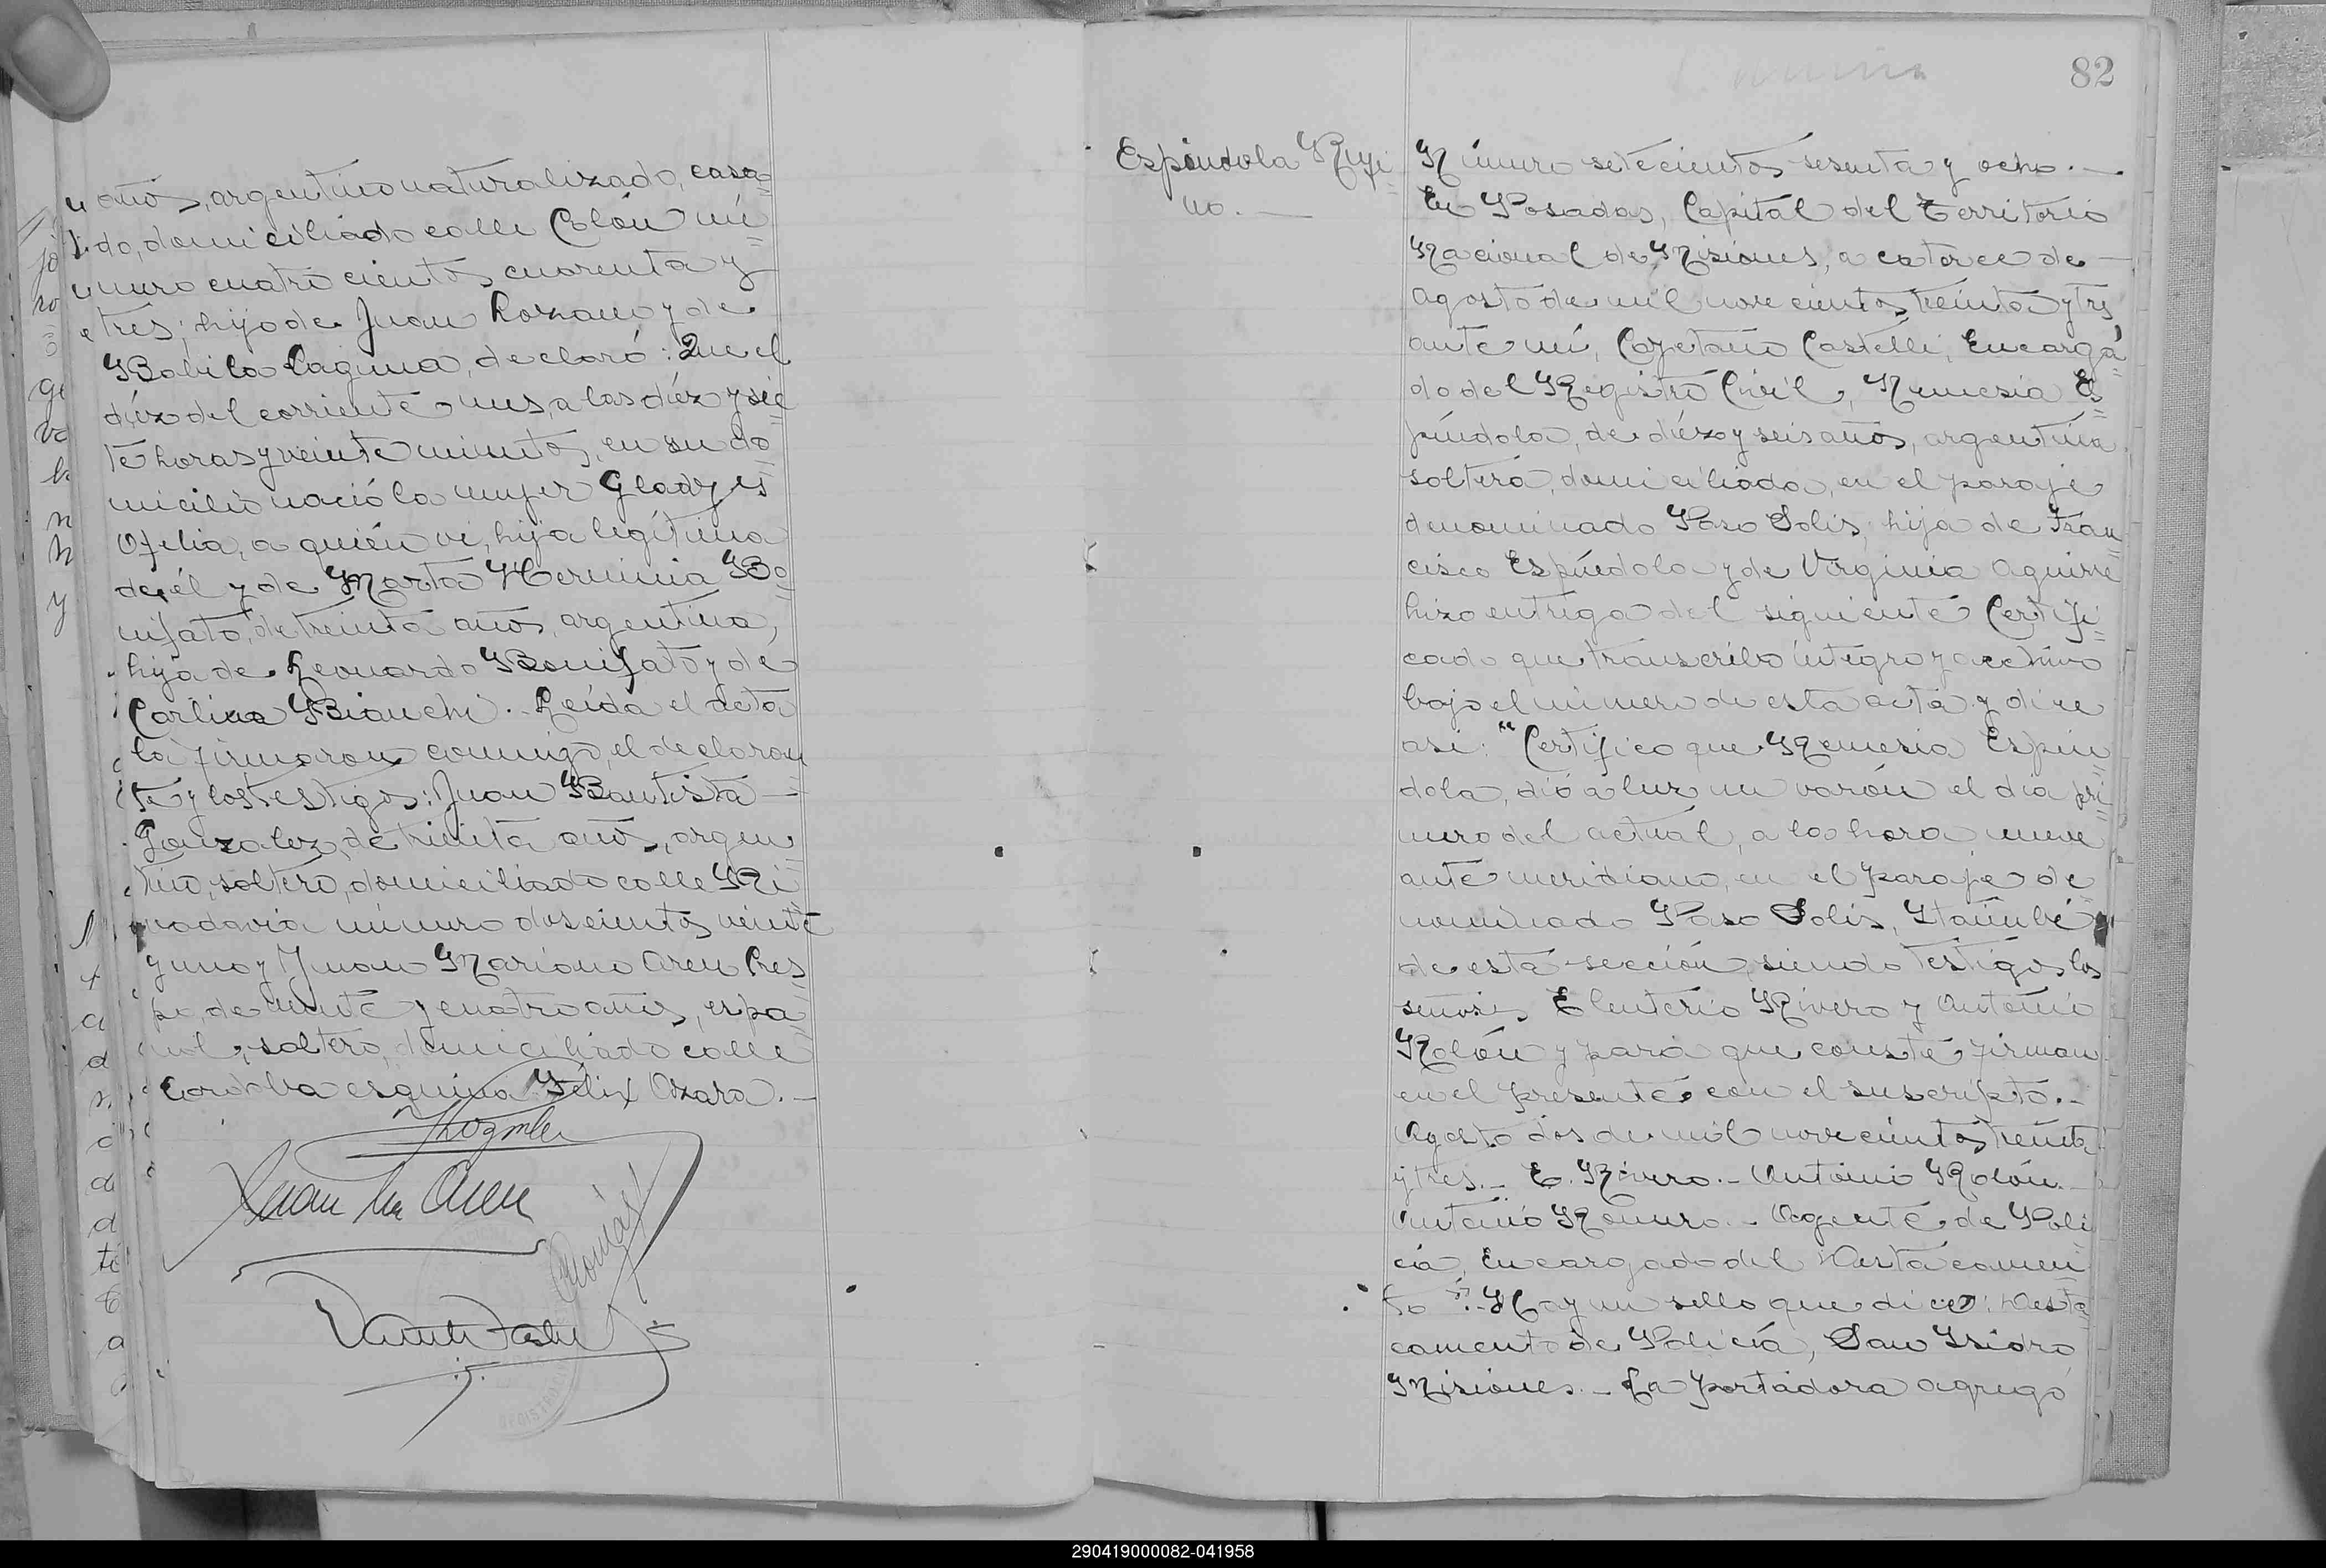 años, argentino naturalizado, casa=
do, domiciliado calle Colón nú=
mero cuatrocientos cuarenta y
tres; hijo de Juan Lozano y de
Babila Laguna, declaró: Que el
diéz del corriente mes, a las diéz y sie=
te horas y veinte minutos, en su do=
micilio nació la mujer Gladys
Ofelia, a quién ví, hija legítima
de él y de Marta Herminia Bo=
nifato, de treinta años, argentina,
hija de Leonardo Bonifato y de
Carlina Bianchi.- Leída el acta
la firmaron conmigo, el declaran=
te y los testigos: Juan Bautista
Gonzalez, de treinta años, argen=
tino, soltero, domiciliado calle Ri=
vadavia número doscientos veinte
y uno y Juan Mariano Aren Cres=
po, de veinte y cuatro años, espa=
ñol, soltero, domiciliado calle
Cordoba esquina Félix Azara.-
Juan Ma Aren
82
Espíndola Rufi=
no.-
Número setecientos sesenta y ocho.-
En Posadas, Capital del Territorio
Nacional de Misiones, a catorce de
Agosto de mil novecientos treinta y tres
ante mí, Cayetano Castelli, Encarga=
do del Registro Civil, Nemesia Es=
píndola, de diéz y seis años, argentina
soltera, domiciliada, en el paraje
denominado Paso Solis, hija de Fran=
cisco Espíndola y de Virginia Aguirre
hizo entrega del siguiente Certifi=
cado que transcribo íntegro y archivo
bajo el número de esta acta y dice
asi: "Certifico que Nemesia Espín=
dola, dió a luz un varón el día pri=
mero del actual, a la hora nueve
ante meridiano, en el paraje de
nominado Paso Solis, Itaimbé
de esta sección, siendo testigos los
señores Eleuterio Rivero y Antonio
Rolón y para que conste firman
en el presente con el suscripto.-
Agosto dos de mil novecientos treinta
y tres.- E. Rivero.- Antonio Rolón.-
Antonio Romero.- Agente de Poli
cía, Encargado del Destacamen=
to".- Hay un sello que dice: Desta=
camento de Policía, San Isidro
Misiones.- La portadora agregó
290419000082-041958